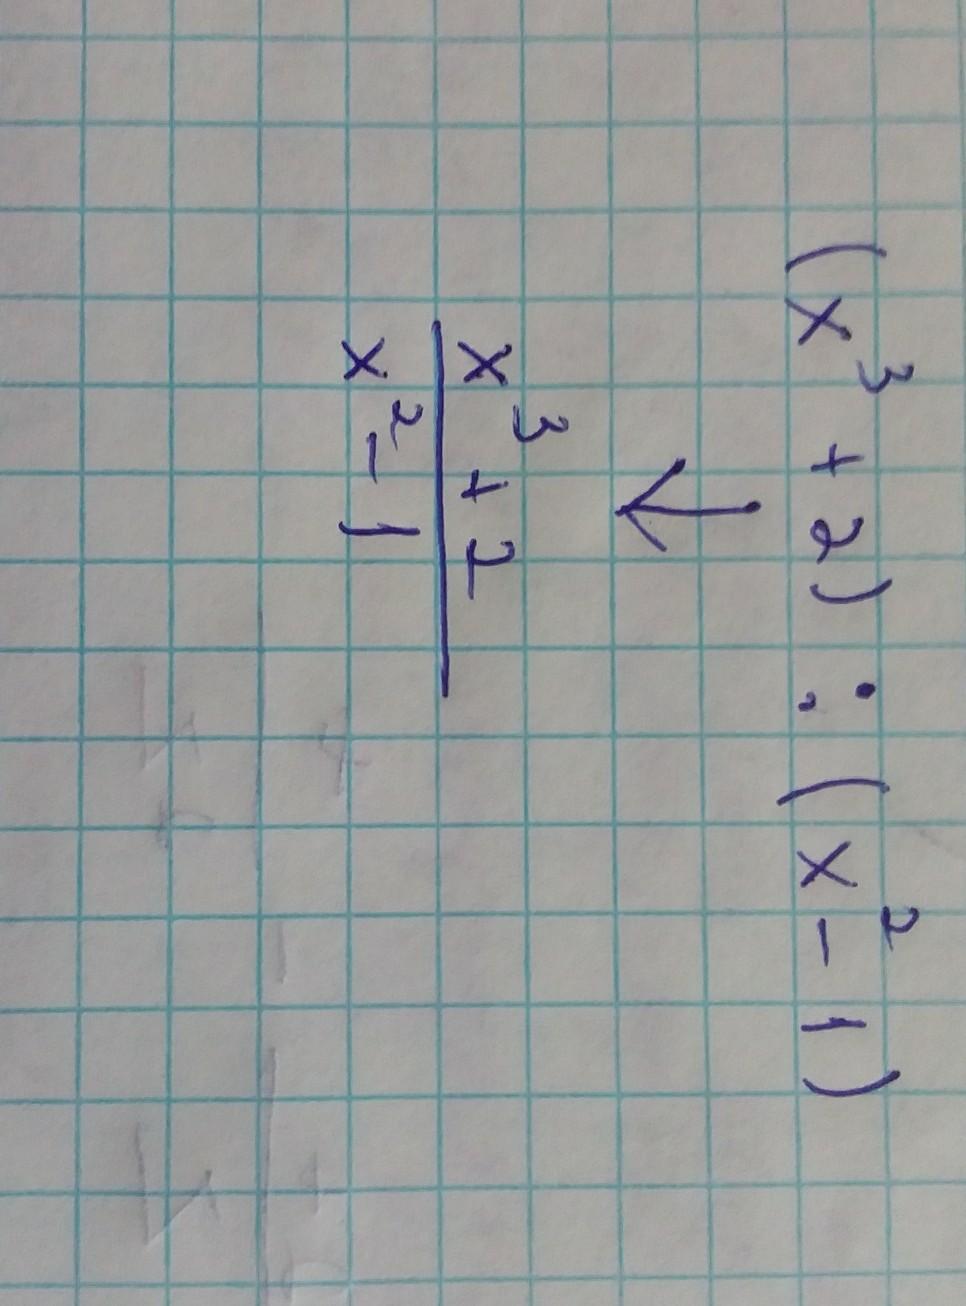 (x³ + 2) : (x² - 1)
↓
x³ + 2
x² - 1